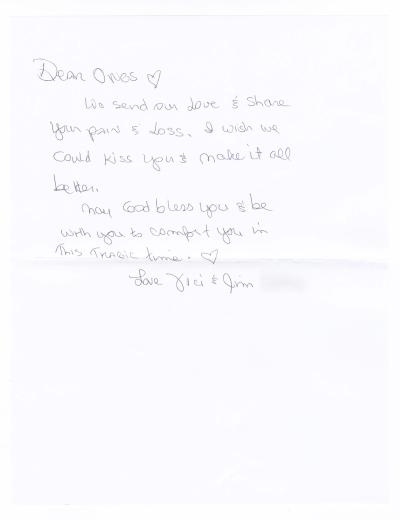 Dear Ones ♡
We send our Love & Share
your pain & Loss. I wish we
could kiss you & make it all
better.
May God bless you & be
with you to comfort you in
This Tragic time. ♡
Love Vici & Jim